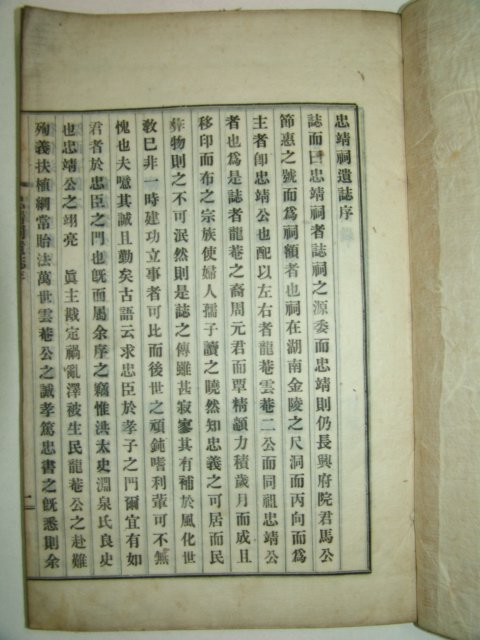 忠靖祠遺誌序
誌而曰忠靖祠者誌祠之源委而忠靖則仍長興府院君馬公
節惠之號而爲祠額者也祠在湖南金陵之尺洞而丙向而爲
主者卽忠靖公也配以左右者龍菴雲菴二公而同祖忠靖公
者也爲是誌者龍菴之裔周元君而覃精額力積歲月而成且
移印而布之宗族使婦人孺子讀之曉然知忠義之可居而民
彝物則之不可泯然則是誌之傳雖甚寂寥其有補於風化世
敎已非一時建功立事者可比而後世之頑鈍嗜利輩可不無
愧也夫噫其誠且勤矣古語云求忠臣於孝子之門爾宜有如
君者於忠臣之門也旣而屬余序之竊惟洪太史淵泉氏良史
也忠靖公之翊亮　眞主戡定禍亂澤被生民龍菴公之赴難
殉義扶植綱常貽法萬世雲菴公之誠孝篤忠書之旣悉則余